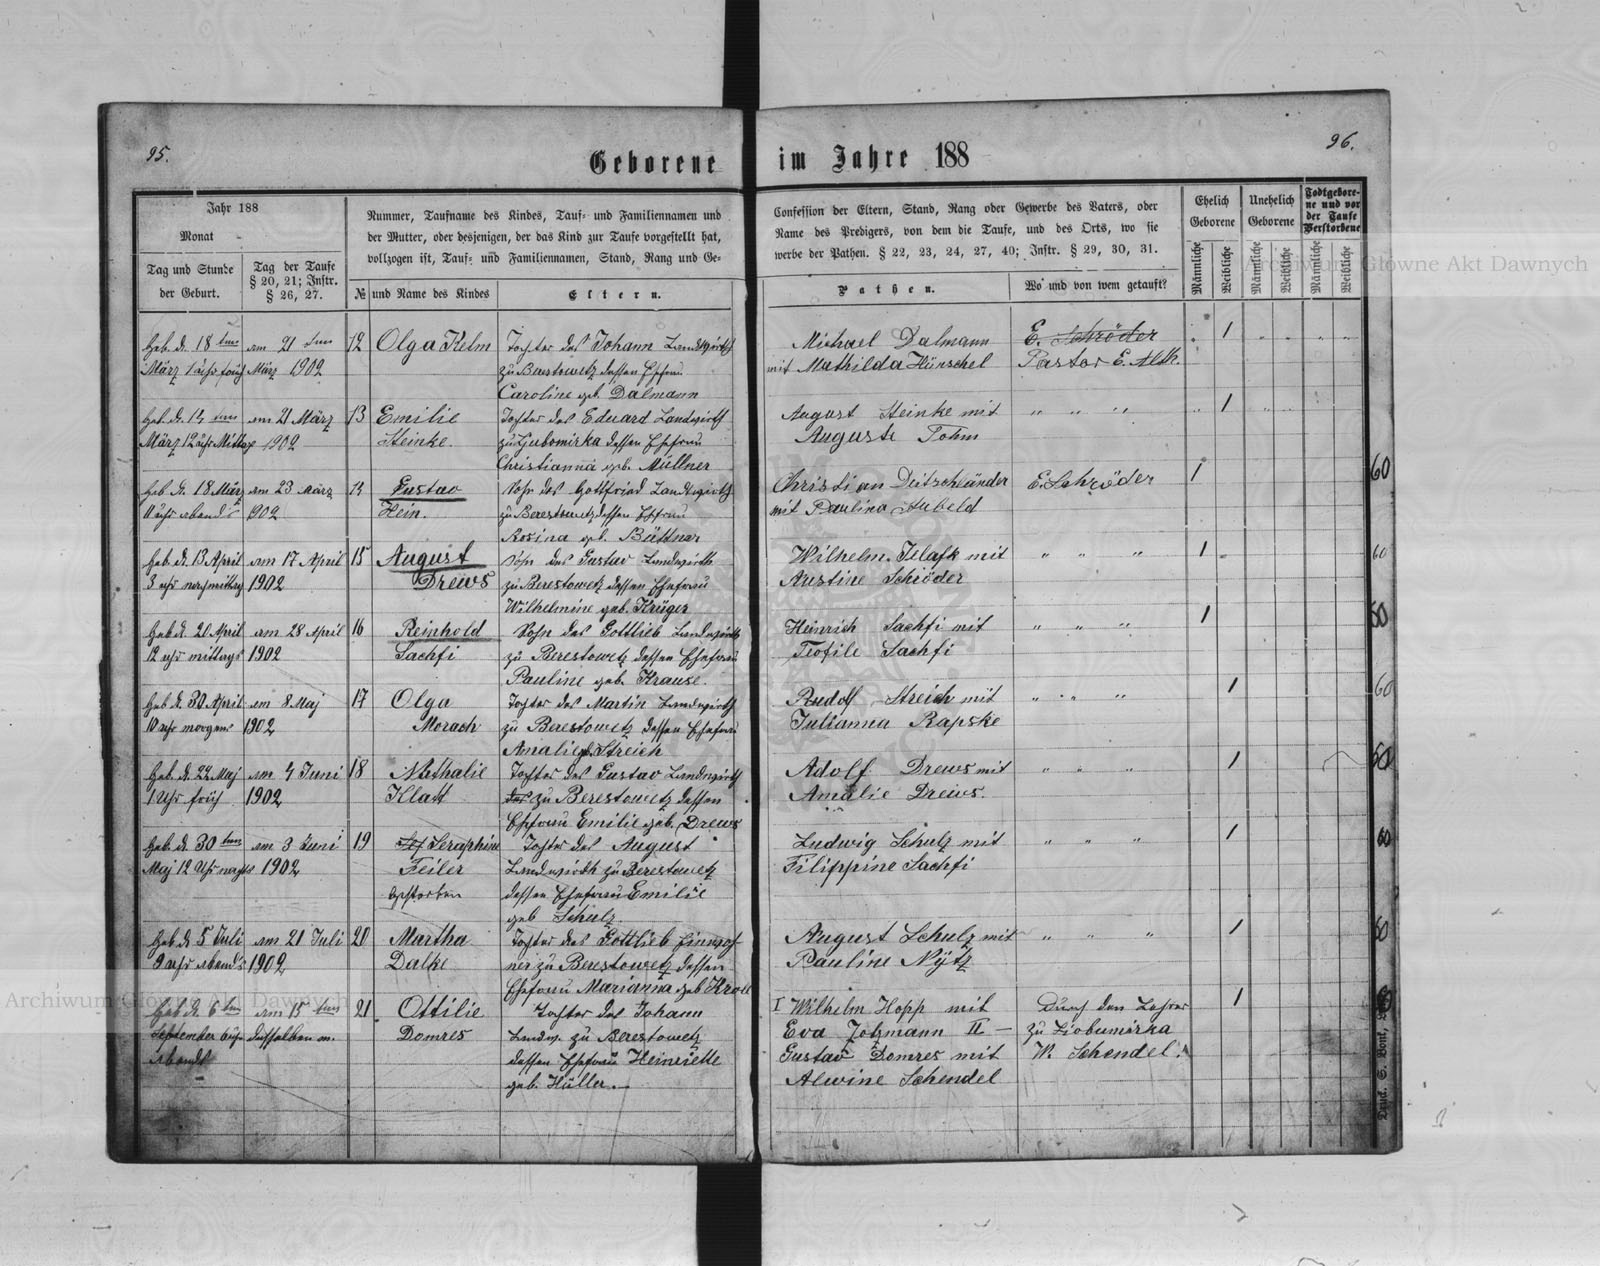 95.
96.
Geborene im Jahre 188
Jahr 188
Monat
Tag und Stunde
der Geburt.
Tag der Taufe
§ 20, 21; Instr.
§ 26, 27.
Nummer, Taufname des Kindes, Tauf- und Familiennamen und
der Mutter, oder desjenigen, der das Kind zur Taufe vorgestellt hat,
vollzogen ist, Tauf- und Familiennamen, Stand, Rang und Ge-
№ und Name des Kindes
Eltern.
Confession der Eltern, Stand, Rang oder Gewerbe des Vaters, oder
Name des Predigers, von dem die Taufe, und des Orts, wo sie
werbe der Pathen. § 22, 23, 24, 27, 40; Instr. § 29, 30, 31.
Pathen.
Wo und von wem getauft?
Ehelich
Geborene
Unehelich
Geborene
Todtgebore-
ne und vor
der Taufe
Verstorbene
Männliche
Weibliche
Männliche
Weibliche
Männliche
Weibliche
Archiwum Główne Akt Dawnych
Geb. d. 18ten am 21ten 12 Olga Kelm Tochter des Johann Landwirth
März 1 uhr früh März 1902 zu Berestowetz dessen Ehfrau
Caroline geb. Dalmann
Michael Dalmann E. Schröder 1
mit Mathilda Hünschel Pastor E. Alth.
am 21 März 13 Emilie Tochter des Eduard Landwirth
März 12 uhr Mittag 1902 Steinke. zu Ljubomirka dessen Ehefrau
Christianna geb. Müllner
August Steinke mit " " " 1
Auguste Tohm
Geb. d. 18 März am 23 März 14 Gustav Sohn des Gottfried Landwirth
11 uhr abends 1902 Hein. zu Berestowetz dessen Ehfrau
Rosina geb. Büttner
Christian Deitschländer E. Schröder 1 60
mit Paulina
Geb. d. 13 April am 17 April 15 August Sohn des Gustav Landwirth
3 uhr nachmittag 1902 Drews zu Berestowetz dessen Ehefrau
Wilhelmine geb. Krüger
Wilhelm mit " " " 1 60
Justine Schröder
Geb. d. 20 April am 28 April 16 Reinhold Sohn des Gottlieb Landwirth
12 uhr mittags 1902 Sachfi zu Berestowetz dessen Ehefrau
Pauline geb. Krause.
Heinrich Sachfi mit " " " 1 60
Teofile Sachfi
Geb. d. 30 April am 8 Maj 17 Olga Tochter des Martin Landwirth
10 uhr morgens 1902 Morach zu Berestowetz dessen Ehefrau
Amalie geb. Streich
Rudolf Streich mit " " " 1 60
Julianna Rapske
Geb. d. 22 Maj am 4 Juni 18 Nathalie Tochter des Gustav Landwirth
1 Uhr früh 1902 Klatt zu Berestowetz dessen
Ehfrau Emilie geb. Drews
Adolf Drews mit " " " 1 60
Amalie Drews.
Geb. d. 30ten am 3 Juni 19 Seraphine Tochter des August
Maj 12 Uhr nachts 1902 Feiler Landwirth zu Berestowetz
gestorben dessen Ehefrau Emilie
geb Schulz.
Ludwig Schulz mit " " " 1 60
Filippine Sachfi
Geb. d. 5 Juli am 21 Juli 20 Martha Tochter des Gottlieb Einwoh-
9 uhr abends 1902 Dalke ner zu Berestowetz dessen
Ehefrau Marianna geb Kroll
August Schulz mit " " " 1 60
Pauline Nÿtz
Geb. d. 6ten am 15ten 21. Ottilie Tochter des Johann
September 6 uhr desselben m. Domres Landw. zu Berestowetz
Abends dessen Ehefrau Heinriette
geb. Müller.
I Wilhelm Hopp mit Durch den Lehrer 1
Eva Jotzmann II — zu Ljobumirka
Gustav Domres mit W. Schendel.
Alwine Schendel
Archiwum Główne Akt Dawnych